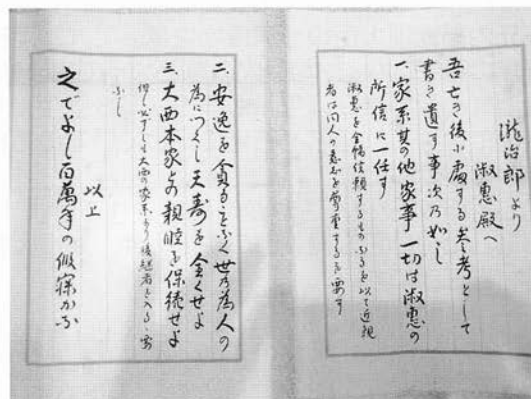 瀧治郎より
淑惠殿へ
吾亡き後に處する参考として
書き遺す事次乃如し
一、家系其の他家事一切は淑惠の
所信に一任す
淑惠を全幅信頼するものなるを以て近親
者は同人の意志を尊重するを要す
二、安逸を貪ることなく世の為人の
為につくし天寿を全くせよ
三、大西本家との親睦を保続せよ
但し必ずしも大西の家系より後継者を入るゝ要
なし
以上
之でよし百萬年の仮寐かな